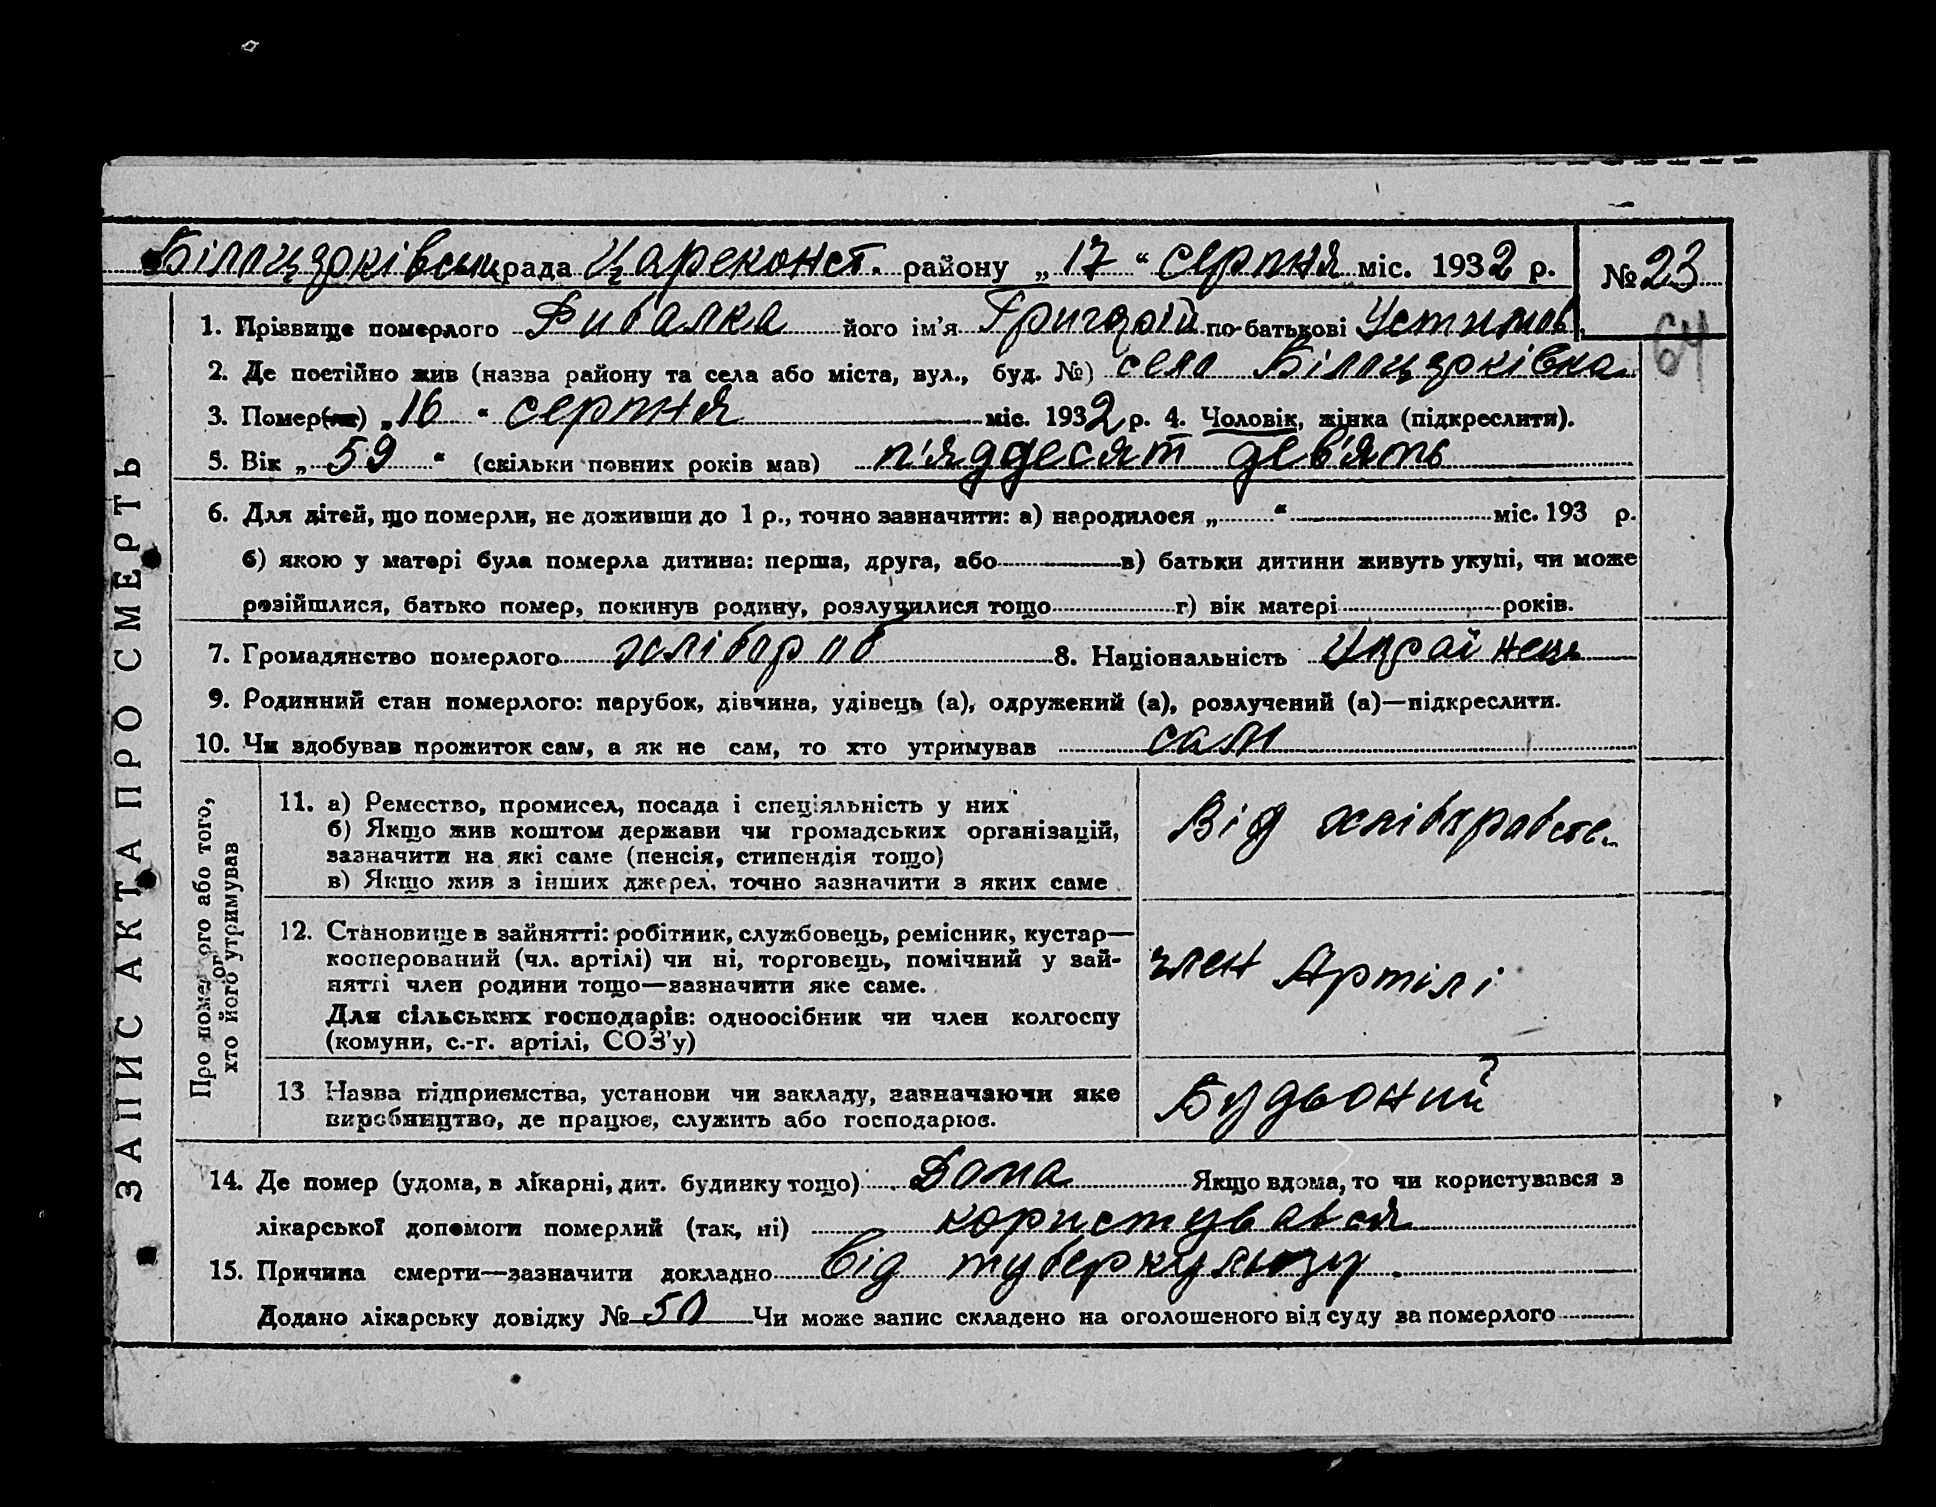 Білицерківськ рада Цареконст. району „ 17 “ серпня міс. 1932 р. № 23
1. Прізвище померлого Дибалка його ім’я Григорій по-батькові Устимов.
64
2. Де постійно жив (назва району та села або міста, вул., буд. №) село Білицерківка
3. Помер(ла) „ 16 “ серпня міс. 1932 р. 4. Чоловік, жінка (підкреслити).
5. Вік „ 59 “ (скільки повних років мав) п'яддесят дев'ять
6. Для дітей, що померли, не доживши до 1 р., точно зазначити: а) народилося „ “ міс. 193 р.
б) якою у матері була померла дитина: перша, друга, або в) батьки дитини живуть укупі, чи може
розійшлися, батько помер, покинув родину, розлучилися тощо г) вік матері років.
7. Громадянство померлого хлібороб 8. Національність Українець
9. Родинний стан померлого: парубок, дівчина, удівець (а), одружений (а), розлучений (а)—підкреслити.
10. Чи здобував прожиток сам, а як не сам, то хто утримував сам
11. а) Ремество, промисел, посада і спеціяльність у них
б) Якщо жив коштом держави чи громадських організацій,
зазначити на які саме (пенсія, стипендія тощо)
в) Якщо жив з інших джерел, точно зазначити з яких саме
Від хліборобств.
12. Становище в зайнятті: робітник, службовець, ремісник, кустар—
косперований (чл. артілі) чи ні, торговець, помічний у зай-
нятті член родини тощо—зазначити яке саме.
Для сільських господарів: одноосібник чи член колгоспу
(комуни, с.-г. артілі, СОЗ’у)
член Артілі
13 Назва підприємства, установи чи закладу, зазначаючи яке
виробництво, де працює, служить або господарює.
Будьоний
14. Де помер (удома, в лікарні, дит. будинку тощо) Дома Якщо вдома, то чи користувався з
лікарської допомоги померлий (так, ні) користувався
15. Причина смерти—зазначити докладно від туберкульозу.
Додано лікарську довідку № 50 Чи може запис складено на оголошеного від суду за померлого
ЗАПИС АКТА ПРО СМЕРТЬ
Про померлого або того,
хто його утримував